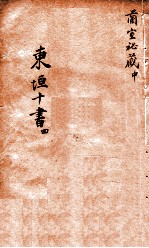 蘭室祕藏中
東垣十書四